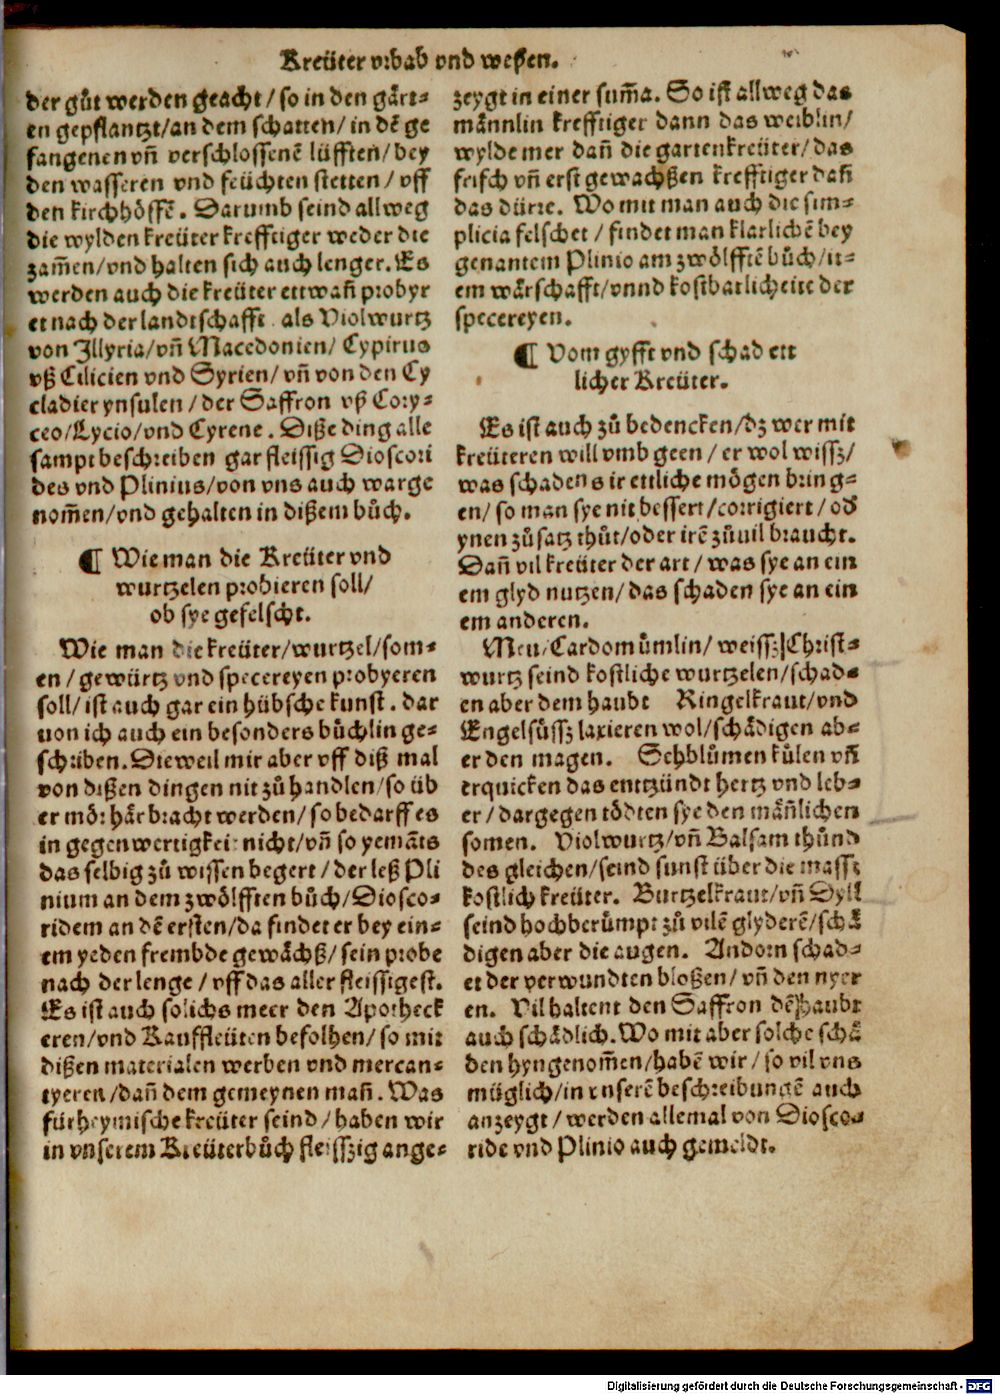 Kreüter vrhab vnd wesen.
der gůt werden geacht / so in den gärt⸗
en gepflantzt/an dem schatten/ in dē ge
fangenen vñ verschlossenē lüfften/ bey
den wasseren vnd feüchten stetten / vff
den kirchhöffē. Darumb seind allweg
die wylden kreüter krefftiger weder die
zam̃en/vnd halten sich auch lenger. Es
werden auch die kreüter ettwañ probyr
et nach der landtschafft als Violwurtz
von Jllyria/vñ Macedonien/ Cypirus
vß Cilicien vnd Syrien/ vñ von den Cy
cladier ynsulen / der Saffron vß Cory⸗
ceo/Lycio/vnd Cyrene. Diße ding alle
sampt beschreiben gar fleissig Dioscori
des vnd Plinius/von vns auch warge
nom̃en/vnd gehalten in dißem bůch.
¶ Wie man die Kreüter vnd
wurtzelen probieren soll/
ob sye gefelscht.
Wie man die kreüter/wurtzel/som⸗
en / gewürtz vnd specereyen probyeren
soll/ ist auch gar ein hübsche kunst. dar
uon ich auch ein besonders büchlin ge⸗
schriben. Dieweil mir aber vff diß mal
von dißen dingen nit zů handlen/so üb
er mör här bracht werden/ so bedarff es
in gegenwertigkeit nicht/vñ so yemāts
das selbig zů wissen begert / der leß Pli
nium an dem zwölfften bůch/Diosco⸗
ridem an dē ersten/da findet er bey ein⸗
em yeden frembde gewächß/ sein probe
nach der lenge / vff das aller fleissigest.
Es ist auch solichs meer den Apotheck
eren/vnd Kauffleüten befolhen/ so mit
dißen materialen werben vnd mercan⸗
tyeren /dañ dem gemeynen mañ. Was
für heymische kreüter seind / haben wir
in vnserem Kreüterbůch fleisszig ange⸗
zeygt in einer sum̃a. So ist allweg das
männlin krefftiger dann das weiblin/
wylde mer dañ die gartenkreüter/das
frisch vñ erst gewachßen krefftiger dañ
das dürre. Wo mit man auch die sim⸗
plicia felschet / findet man klarlichē bey
genantem Plinio am zwölfftē bůch/it⸗
em wärschafft/vnnd kostbarlicheite der
specereyen.
¶ Vom gyfft vnd schad ett
licher Kreüter.
Es ist auch zů bedencken/dz wer mit
kreüteren will vmb geen / er wol wissz/
was schadens ir ettliche mögen bring⸗
en/ so man sye nit bessert/corrigiert / od̄
ynen zůsatz thůt/oder irē zůuil braucht.
Dañ vil kreüter der art / was sye an ein
em glyd nutzen/ das schaden sye an ein
em anderen.
Meu/Cardomůmlin/ weissz Christ⸗
wurtz seind kostliche wurtzelen/schad⸗
en aber dem haubt Ringelkraut/vnd
Engelsůssz laxieren wol/schädigen ab⸗
er den magen. Sehblůmen külen vñ
erquicken das entzündt hertz vnd leb⸗
er / dargegen tödten sye den mäñlichen
somen. Violwurtz/vñ Balsam thůnd
des gleichen/seind sunst über die massz
kostlich kreüter. Burtzelkraut/vñ Dyll
seind hochberümpt zů vilē glyderē/schä
digen aber die augen. Andorn schad⸗
et der verwundten bloßen/ vñ den nyer
en. Vil haltent den Saffron dē haubt
auch schädlich. Wo mit aber solche schä
den hyngenom̃en/habē wir / so vil vns
müglich/in vnserē beschreibungē auch
anzeygt / werden allemal von Diosco⸗
ride vnd Plinio auch gemeldt.
Digitalisierung gefördert durch die Deutsche Forschungsgemeinschaft - DFG